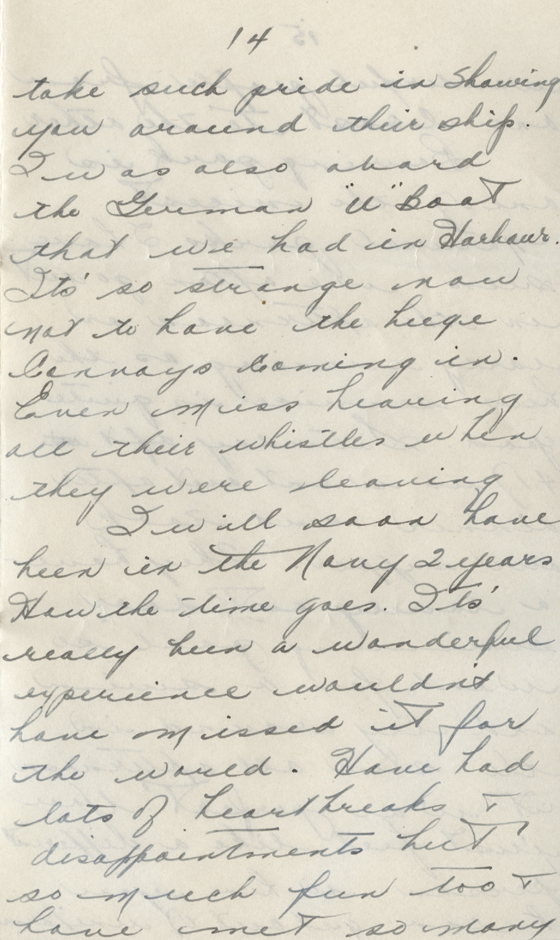 14
take such pride in showing
you around their ship.
I was also aboard
the German "U" Boat
that we had in Harbour.
Its' so strange now
not to have the huge
Convoys coming in.
Even miss hearing
all their whistles when
they were leaving
I will soon have
been in the Navy 2 years
How the time goes. Its'
really been a wonderful
experience wouldn't
have missed it for
the world. Have had
lots of heartbreaks +
disappointments but
so much fun too +
have met so many